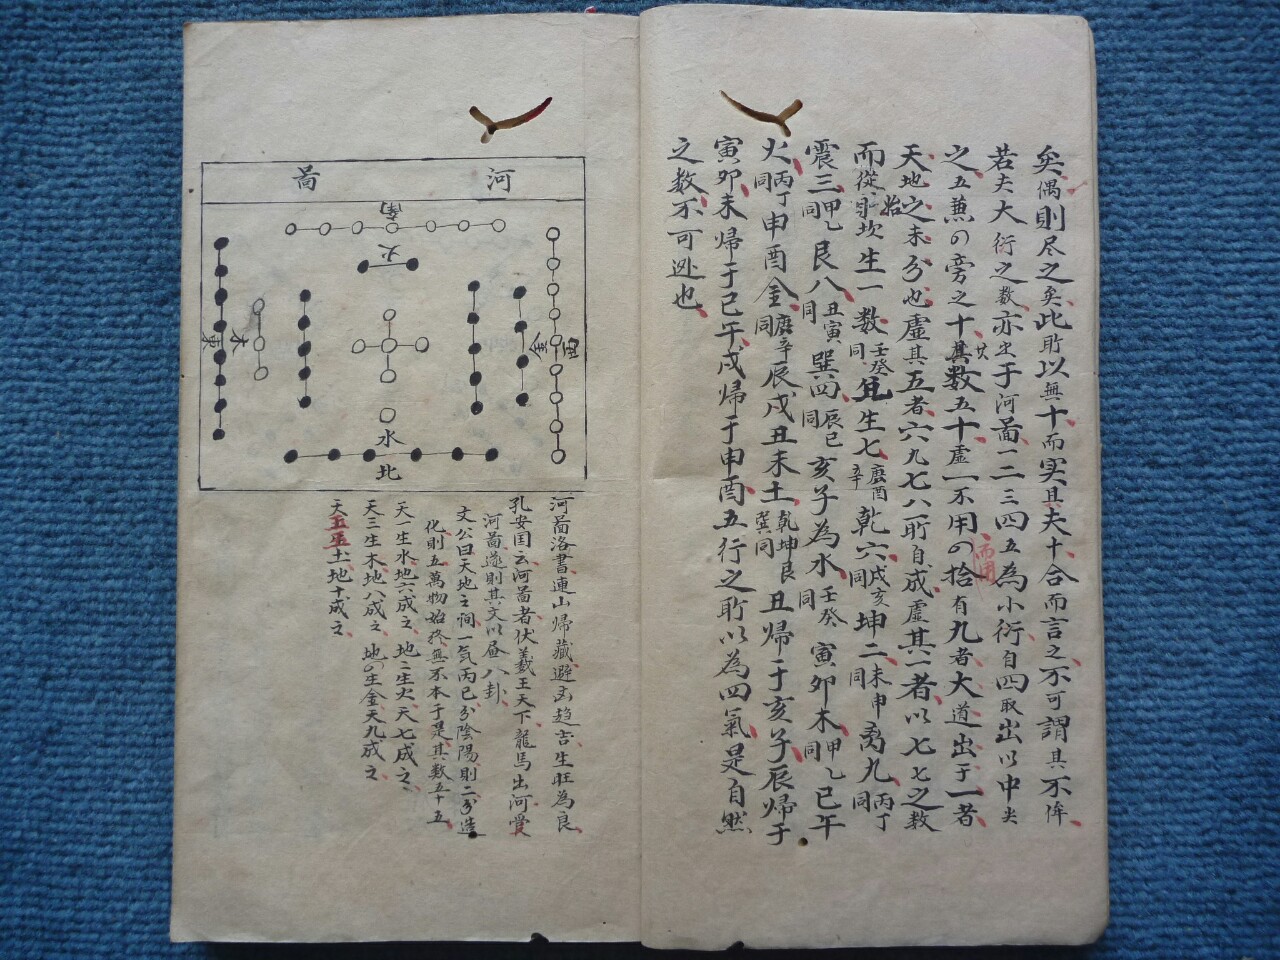 矣偶則尽之矣此所以無十而实具夫十合而言之不可謂其不侔
若夫大衍之数亦出于河啚一二三四五為小衍自四取出以中央
之五兼の旁之十其数五十虛一不用の拾有九者大道出于一者
而用
天地之未分也虛其五者六九七八所自成虛其一者以七七之数
而從坎生一数壬癸同兑生七庚酉辛乾六戌亥同坤二未申同离九丙丁同
始
震三甲乙同艮八丑寅同巽四辰巳同亥子為水壬癸同寅卯木甲乙同巳午
火丙丁同申酉金庚辛同辰戌丑未土乾坤艮巽同丑歸于亥子辰歸于
寅卯未歸于巳午戌歸于申酉五行之所以為四氣是自然
之数不可迯也
河啚
南
火
東
木
金
西
水
北
河啚洛書連山歸藏避凶趋吉生旺為良
孔安国云河啚者伏羲王天下龍馬出河爰
河啚遂則其文以昼八卦
文公曰天地之间一気而已分陰陽則二分造
化則五萬物始终無不本于是其数五十五
天一生水地六成之地二生火天七成之
天三生木地八成之地の生金天九成之
天五生土地十成之